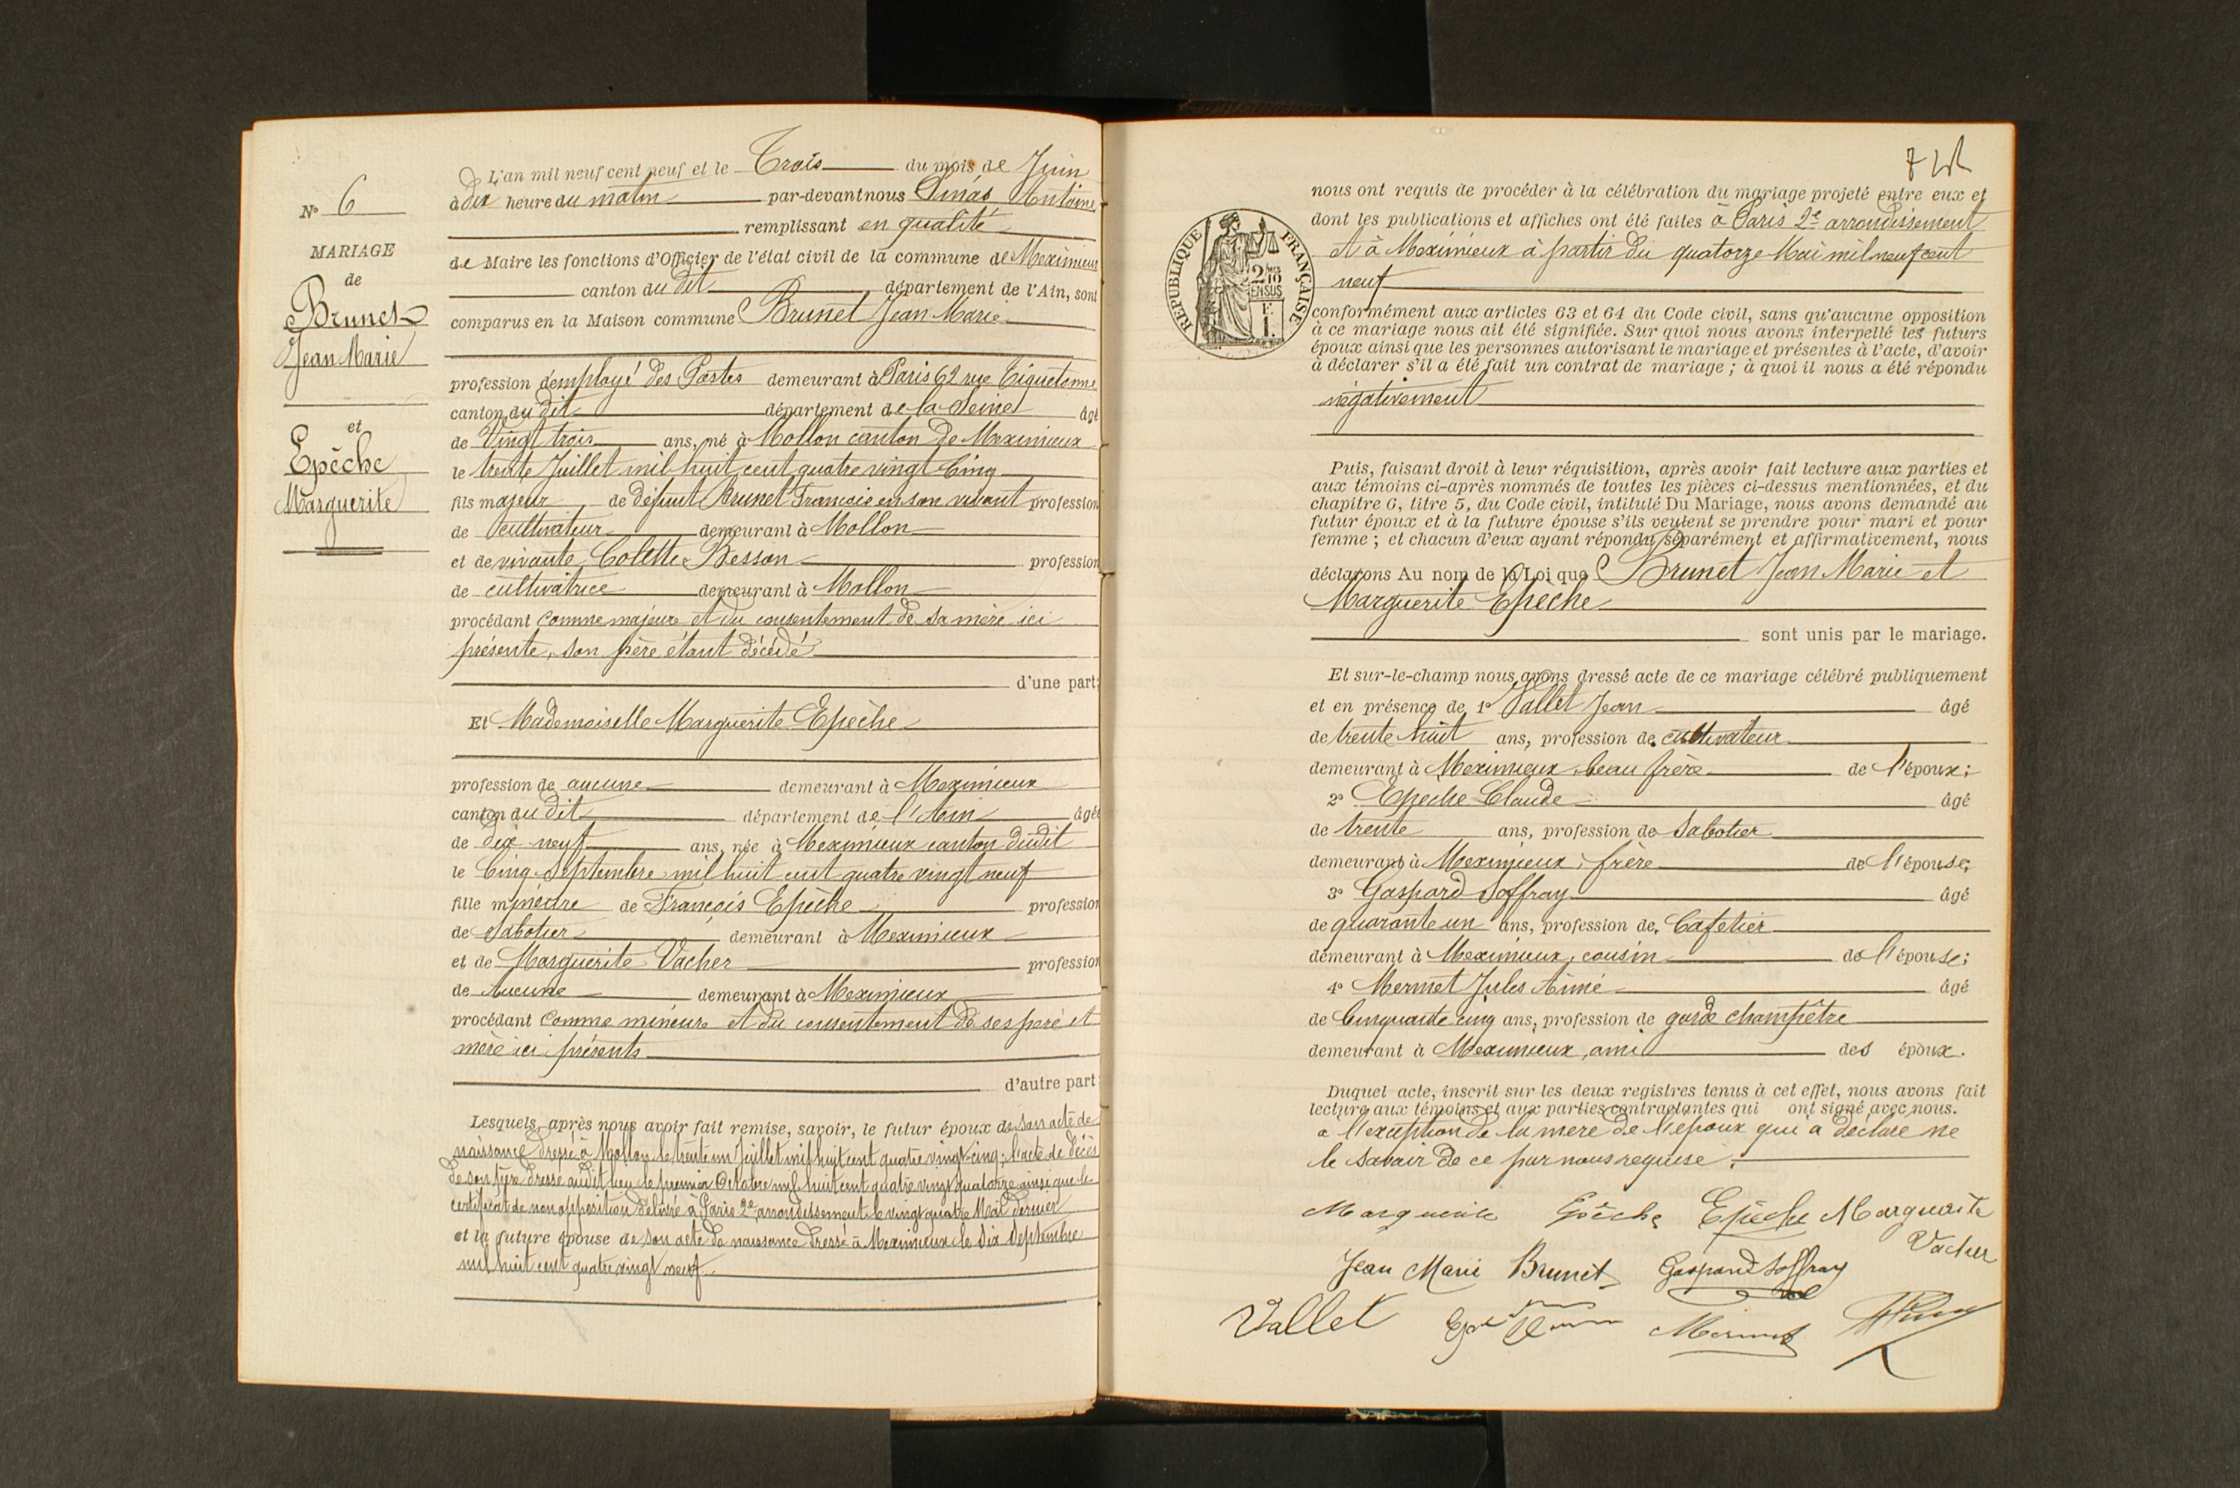 N° 6
MARIAGE
de
Brunet
Jean Marie
et
Epêche
Marguerite
L'an mil neuf cent neuf et le Trois du mois de Juin
à dix heure du matin par-devant nous Antoine
remplissant en qualité
de Maire les fonctions d'Officier de l'état civil de la commune de Meximieux
canton du dit département de l'Ain, sont
comparus en la Maison commune Brunet Jean Marie
profession d'employé des Postes demeurant à Paris 62 rue Tiquetonne
canton du dit département de la Seine âgé
de Vingt trois ans, né à Mollon canton de Meximieux
le trente Juillet mil huit cent quatre vingt Cinq
fils majeur de défunt Brunet Francois en son vivant profession
de cultivateur demeurant à Mollon
et de vivante Colette Besson profession
de cultivatrice demeurant à Mollon
procédant comme majeure et du consentement de sa mère ici
présente, son père étant décédé
d'une part;
Et Mademoiselle Marguerite Epèche
profession de aucune demeurant à Meximieux
canton du dit département de l'Ain âgée
de dix neuf ans, née à Meximieux canton dudit
le Cinq Septembre mil huit cent quatre vingt neuf
fille mineure de François Epèche profession
de Sabotier demeurant à Meximieux
et de Marguerite Vacher profession
de Aucune demeurant à Meximieux
procédant comme mineure et du consentement de ses père et
mère ici présents
d'autre part
Lesquels, après nous avoir fait remise, savoir, le futur époux de son acte de
naissance dressé à Mollon le trente un Juillet mil huit cent quatre vingt-cinq; l'acte de décès
de son père dressé audit lieu le premier Octobre mil huit cent quatre vingt quatorze ainsi que le
certificat de non opposition délivré à Paris 2e arrondissement le vingt quatre Mai dernier
et la future épouse de son acte de naissance dressé à Meximieux le dix Septembre
mil huit cent quatre vingt neuf
7
nous ont requis de procéder à la célébration du mariage projeté entre eux et
dont les publications et affiches ont été faites à Paris 2e arrondissement
et à Meximieux à partir du quatorze Mai mil neuf cent
neuf
REPUBLIQUE FRANÇAISE
2/10
EN SUS
F.
1.
conformément aux articles 63 et 64 du Code civil, sans qu'aucune opposition
à ce mariage nous ait été signifiée. Sur quoi nous avons interpellé les futurs
époux ainsi que les personnes autorisant le mariage et présentes à l'acte, d'avoir
à déclarer s'il a été fait un contrat de mariage; à quoi il nous a été répondu
négativement
Puis, faisant droit à leur réquisition, après avoir fait lecture aux parties et
aux témoins ci-après nommés de toutes les pièces ci-dessus mentionnées, et du
chapitre 6, titre 5, du Code civil, intitulé Du Mariage, nous avons demandé au
futur époux et à la future épouse s'ils veulent se prendre pour mari et pour
femme; et chacun d'eux ayant répondu séparément et affirmativement, nous
déclarons Au nom de la Loi que Brunet Jean Marie et
Marguerite Epeche
sont unis par le mariage.
Et sur-le-champ nous avons dressé acte de ce mariage célébré publiquement
et en présence de 1° Vallet Jean âgé
de trente huit ans, profession de cultivateur
demeurant à Meximieux, beau frère de l'époux;
2° Epeche Claude âgé
de trente ans, profession de Sabotier
demeurant à Meximieux, frère de l'épouse;
3° Gaspard Soffray âgé
de quarante un ans, profession de Cafetier
demeurant à Meximieux, cousin de l'épouse;
4° Mermet Jules Aimé âgé
de Cinquante cinq ans, profession de garde champêtre
demeurant à Meximieux, ami des époux.
Duquel acte, inscrit sur les deux registres tenus à cet effet, nous avons fait
lecture aux témoins et aux parties contractantes qui ont signé avec nous.
a l'exception de la mere de l'epoux qui a déclaré ne
le savoir de ce par nous requise.
Marguerite Epêche Epêche Marguerite
Vacher
Jean Marie Brunet Gaspard Soffray
Vallet Mermet